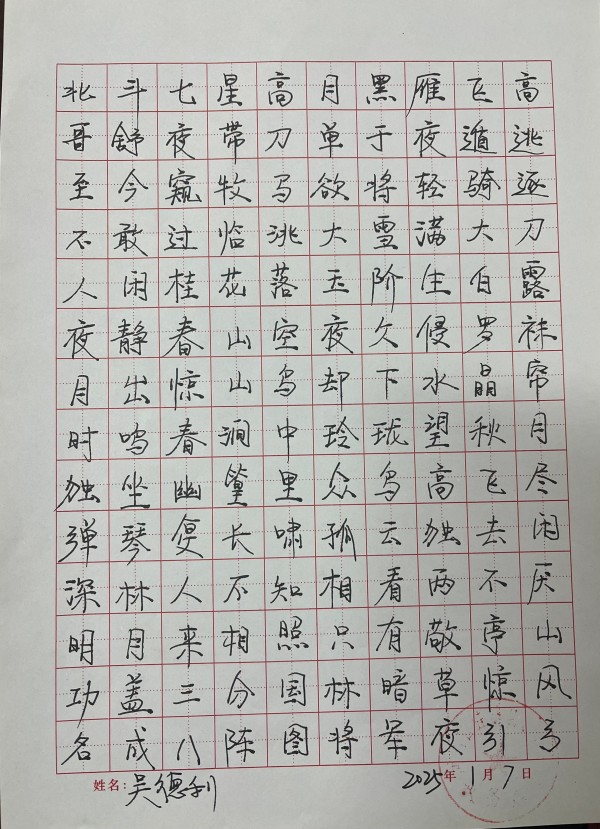 北斗七星高月黑雁飞高
哥舒夜带刀单于夜遁逃
至今窥牧马欲将轻骑逐
不敢过临洮大雪满大刀
人闲桂花落玉阶生白露
夜静春山空夜欠侵罗袜
月出惊山鸟却下水晶帘
时鸣春涧中玲珑望秋月
独坐幽篁里众鸟高飞尽
弹琴复长啸孤云独去闲
深林人不知相看两不厌
明月来相照只有敬亭山
功盖三分国林暗草惊风
名成八阵图将军夜引弓
姓名:吴德利 2025年1月7日